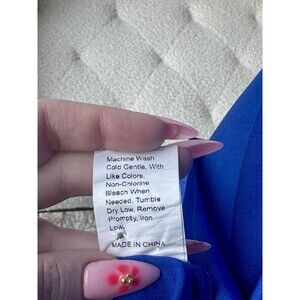 Machine Wash
Cold Gentle, With
Like Colors,
Non-Chlorine
Bleach When
Needed, Tumble
Dry Low, Remove
Promptly, Iron
Low.
MADE IN CHINA